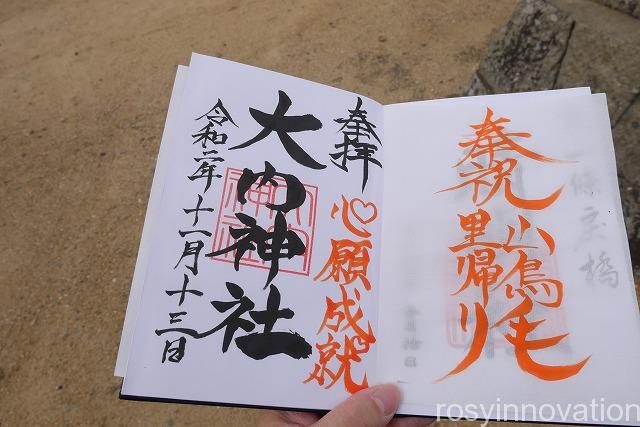 奉祝山鳥毛
里帰り
奉拝
心願成就
大内神社
令和二年十一月十三日
rosyinnovation